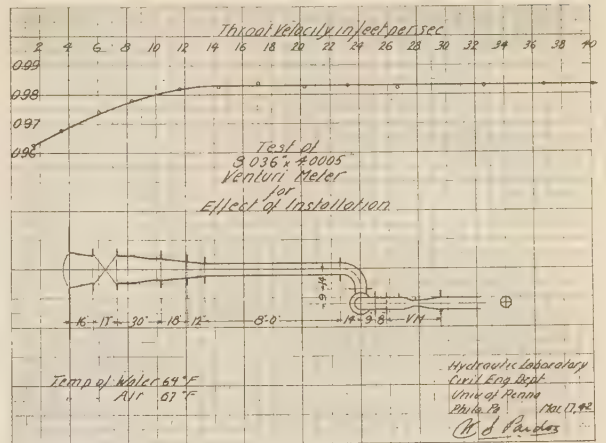 Throat Velocity in feet per sec
2 4 6 8 10 12 14 16 18 20 22 24 26 28 30 32 34 36 38 40
0.99
0.98
0.97
0.96
Test of
8.036" x 4.0005
Venturi Meter
for
Effect of Installation
9 14
16 17 30" 18 12 8'-0" 14 9 8 VM
Temp of Water 64°F
Air 67°F
Hydraulic Laboratory
Civil Eng Dept
Univ of Penna
Phila Pa Mar 17, 42
W S Pardoe